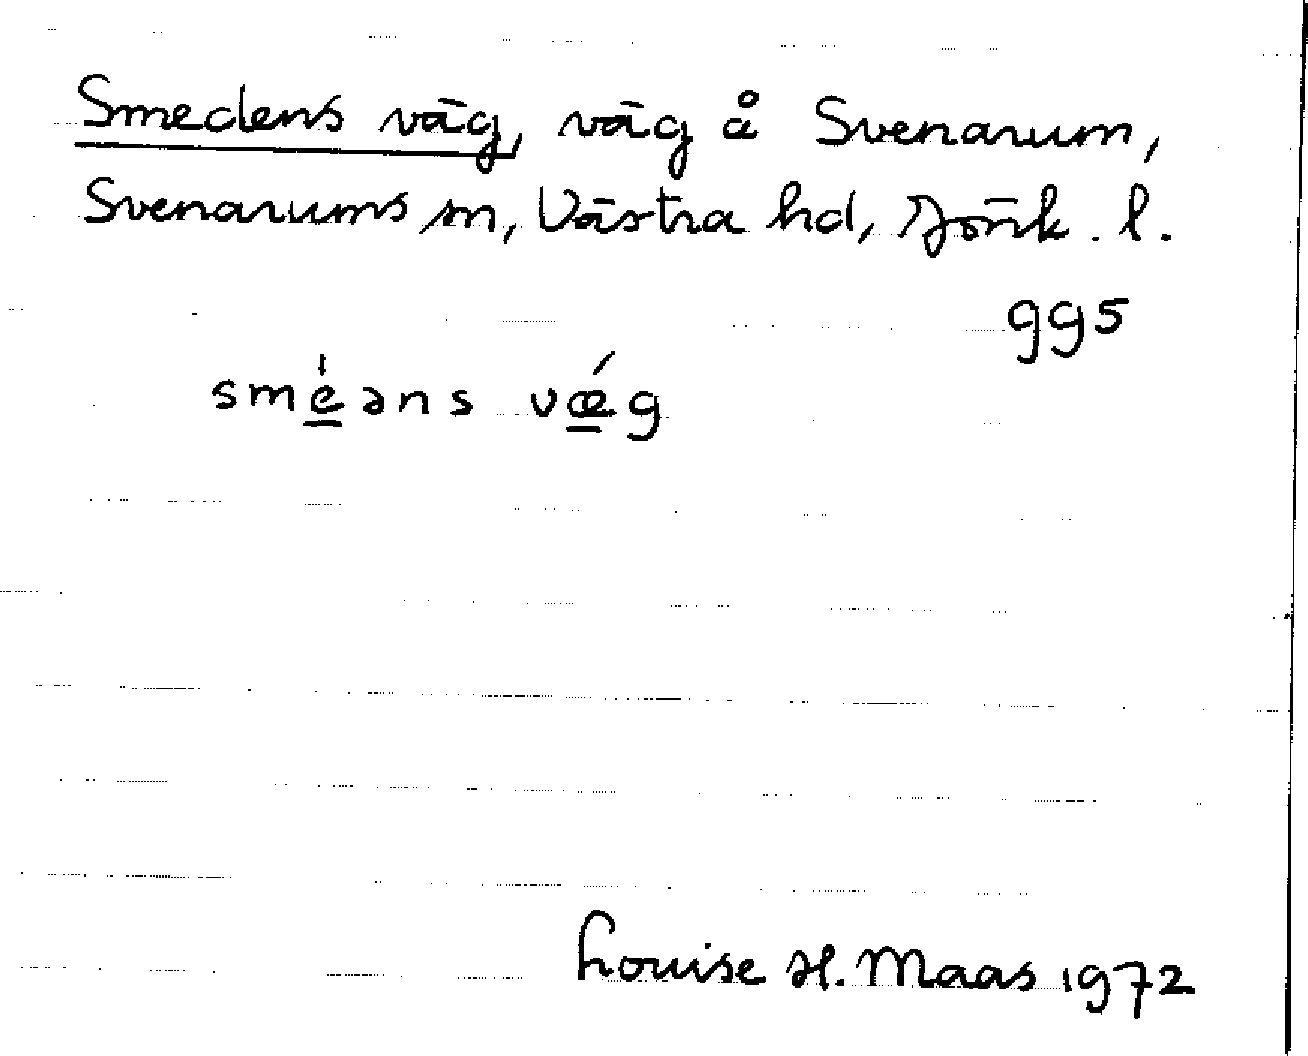 Smedens väg, väg å Svenarum,
Svenarums sn, Västra hd, Jönk. l.
995
sme̲̍əns vǽ̲g
Louise H. Maas 1972